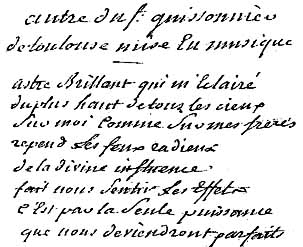 autre du f. quissonnier
de toulouse mise En musique
astre Brillant qui m'Eclairé
du plus haut de tous les cieux
Sur moi Comme Sur mes freres
repend Ses feux radieux
de la divine influence
fait nous Sentir Les Effets
c'Est par la Seule puissance
que nous deviendront parfaits